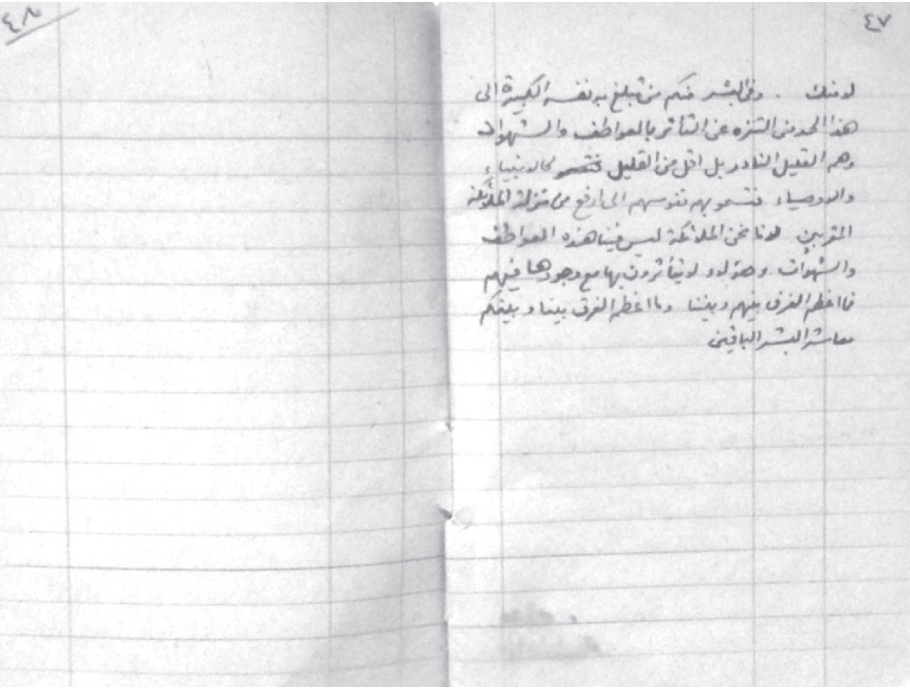 ٤٧
لا منك . وفي البشر منكم من تبلغ به نفسه الكبيرة الى
هذا الحد من التنزه عن التأثر بالعواطف والشهوات
وهم القليل النادر بل اقل من القليل كالانبياء
والاوصياء فتسمو بهم نفوسهم الى ارفع من منزلة الملائكة
المقربين لانا نحن الملائكة ليس فينا هذه العواطف
والشهوات . وهؤلاء لا يتأثرون بها مع وجودها فيهم
فما اعظم الفرق بينهم وبيننا وما اعظم الفرق بيننا وبينكم
معاشر البشر الباقين
٤٨